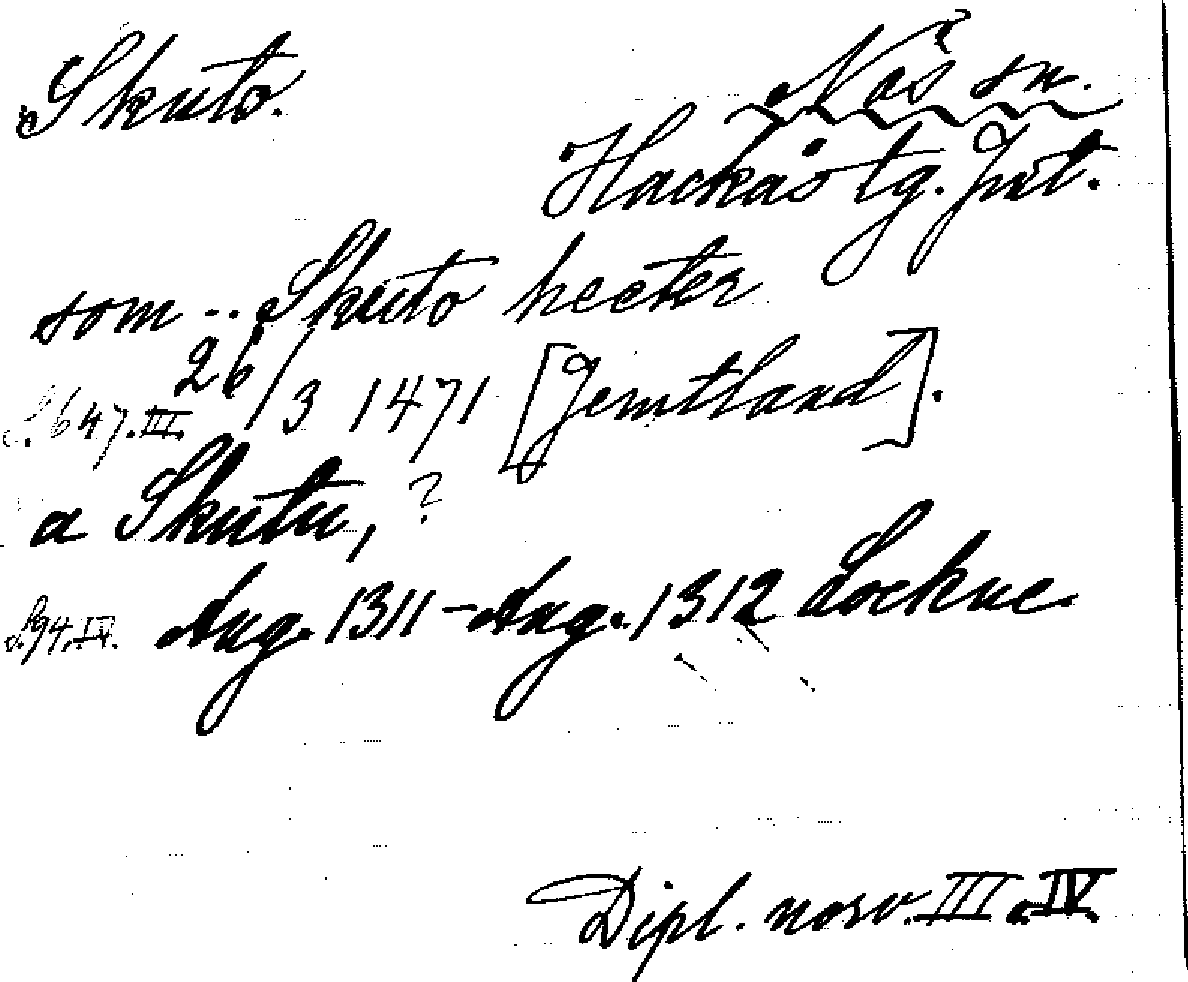 Skuto.
Näs sn.
Hackås tg. Jmt.
som .. Skuto heeter
S. 647. III. 26/3 1471 [Jemtland].
a Skutu, ?
S. 94. IV. Aug. 1311 - Aug. 1312 Lockne.
Dipl. norv. III o. IV